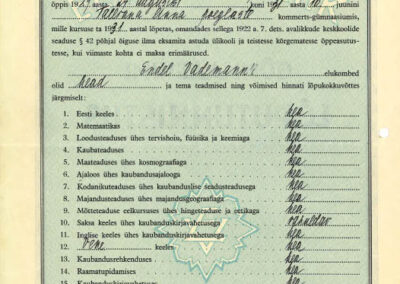 õppis 19 aasta 24 augustist kuni 1931 aasta 10 juunini
Tallinna Linna poeglaste kommerts-gümnaasiumis,
mille kursuse ta 1931 aastal lõpetas, omandades sellega 1922 a. 7. dets. avalikkude keskkoolide
seaduse § 42 põhjal õiguse ilma eksamita astuda ülikooli ja teistesse kõrgematesse õppeasutus-
tesse, kui viimaste kohta ei maksa erimäärused.
Endel Vademann'i elukombed
olid head ja tema teadmised ning võimised hinnati lõpukokkuvõttes
järgmiselt:
1. Eesti keeles hea
2. Matemaatikas hea
3. Loodusteaduses ühes tervishoiu, füüsika ja keemiaga hea
4. Kaubateaduses hea
5. Maateaduses ühes kosmograafiaga hea
6. Ajaloos ühes kaubandusajalooga hea
7. Kodanikuteaduses ühes kaubanduslise seadusteadusega hea
8. Majandusteaduses ühes majandusgeograafiaga hea
9. Mõtteteaduse eelkursuses ühes hingeteaduse ja eetikaga hea
10. Saksa keeles ühes kaubanduskirjavahetusega rahuldav
11. Inglise keeles ühes kaubanduskirjavahetusega hea
12. Vene keeles hea
13. Kaubandusrehkenduses hea
14. Raamatupidamises hea
15. Kaubanduskirjavahetuses hea